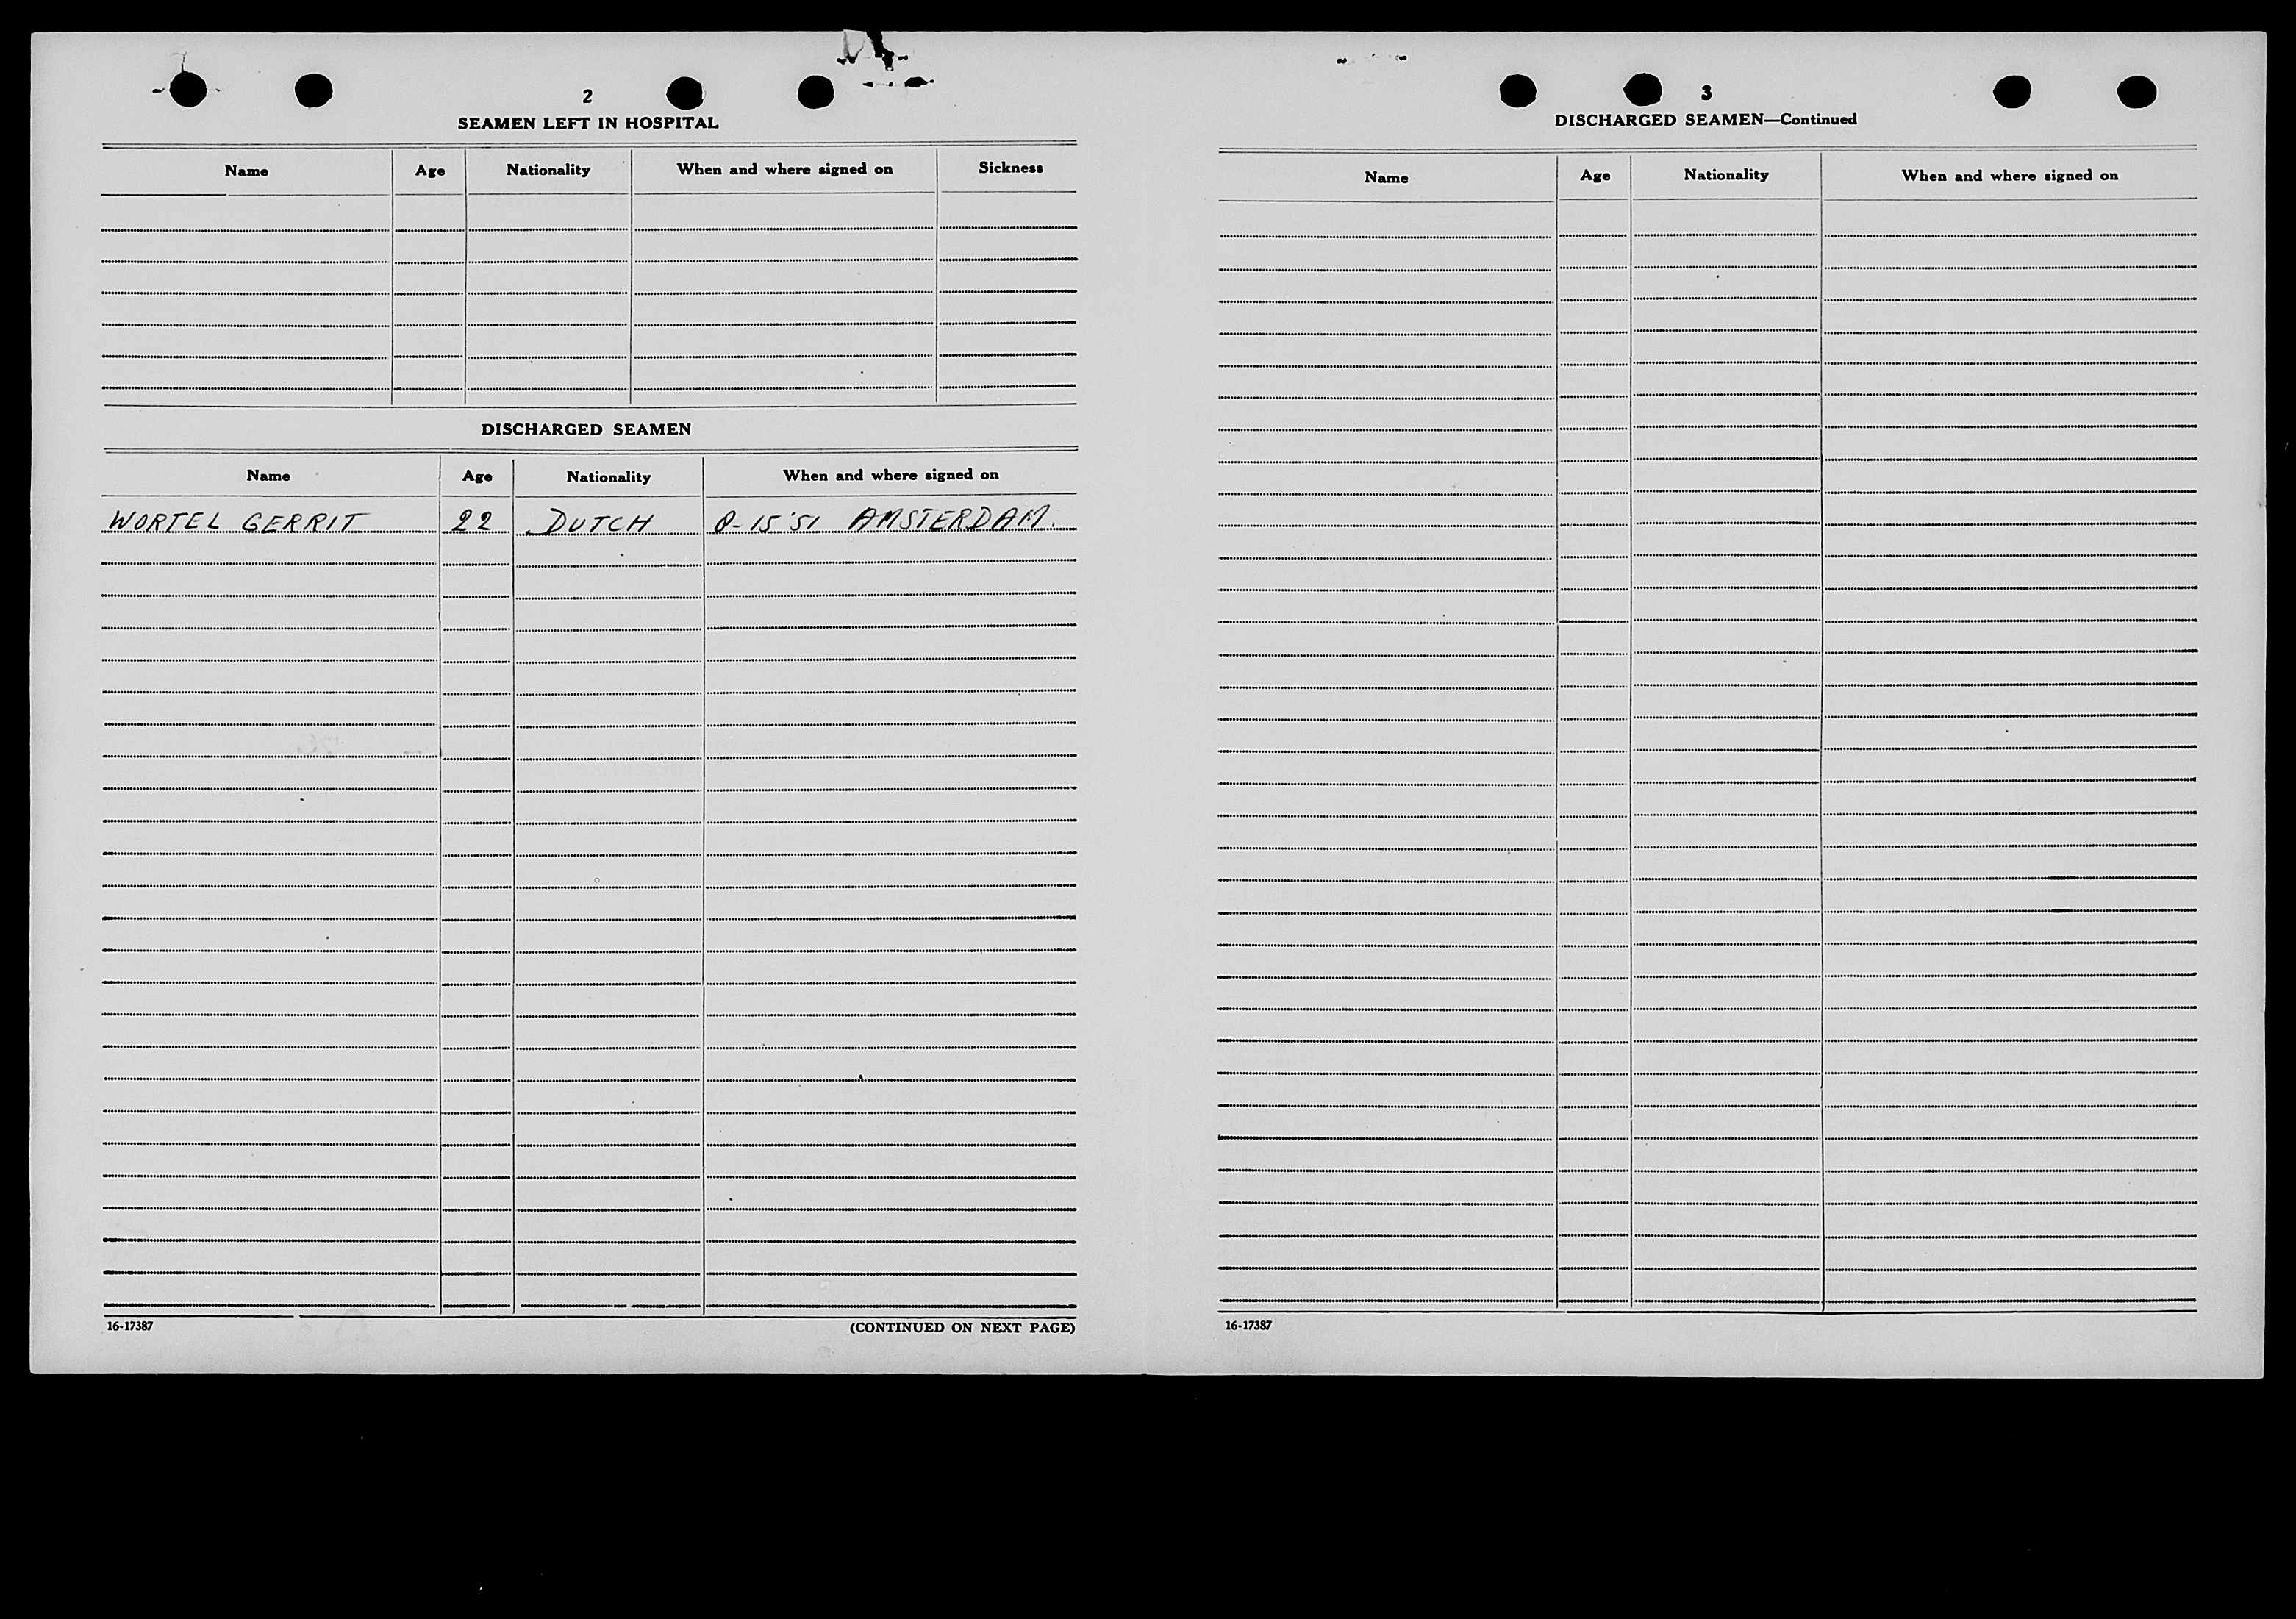 2
SEAMEN LEFT IN HOSPITAL
Name Age Nationality When and where signed on Sickness
DISCHARGED SEAMEN
Name Age Nationality When and where signed on
WORTEL GERRIT 22 DUTCH 8-15'51 AMSTERDAM.
16-17387 (CONTINUED ON NEXT PAGE)
3
DISCHARGED SEAMEN—Continued
Name Age Nationality When and where signed on
16-17387